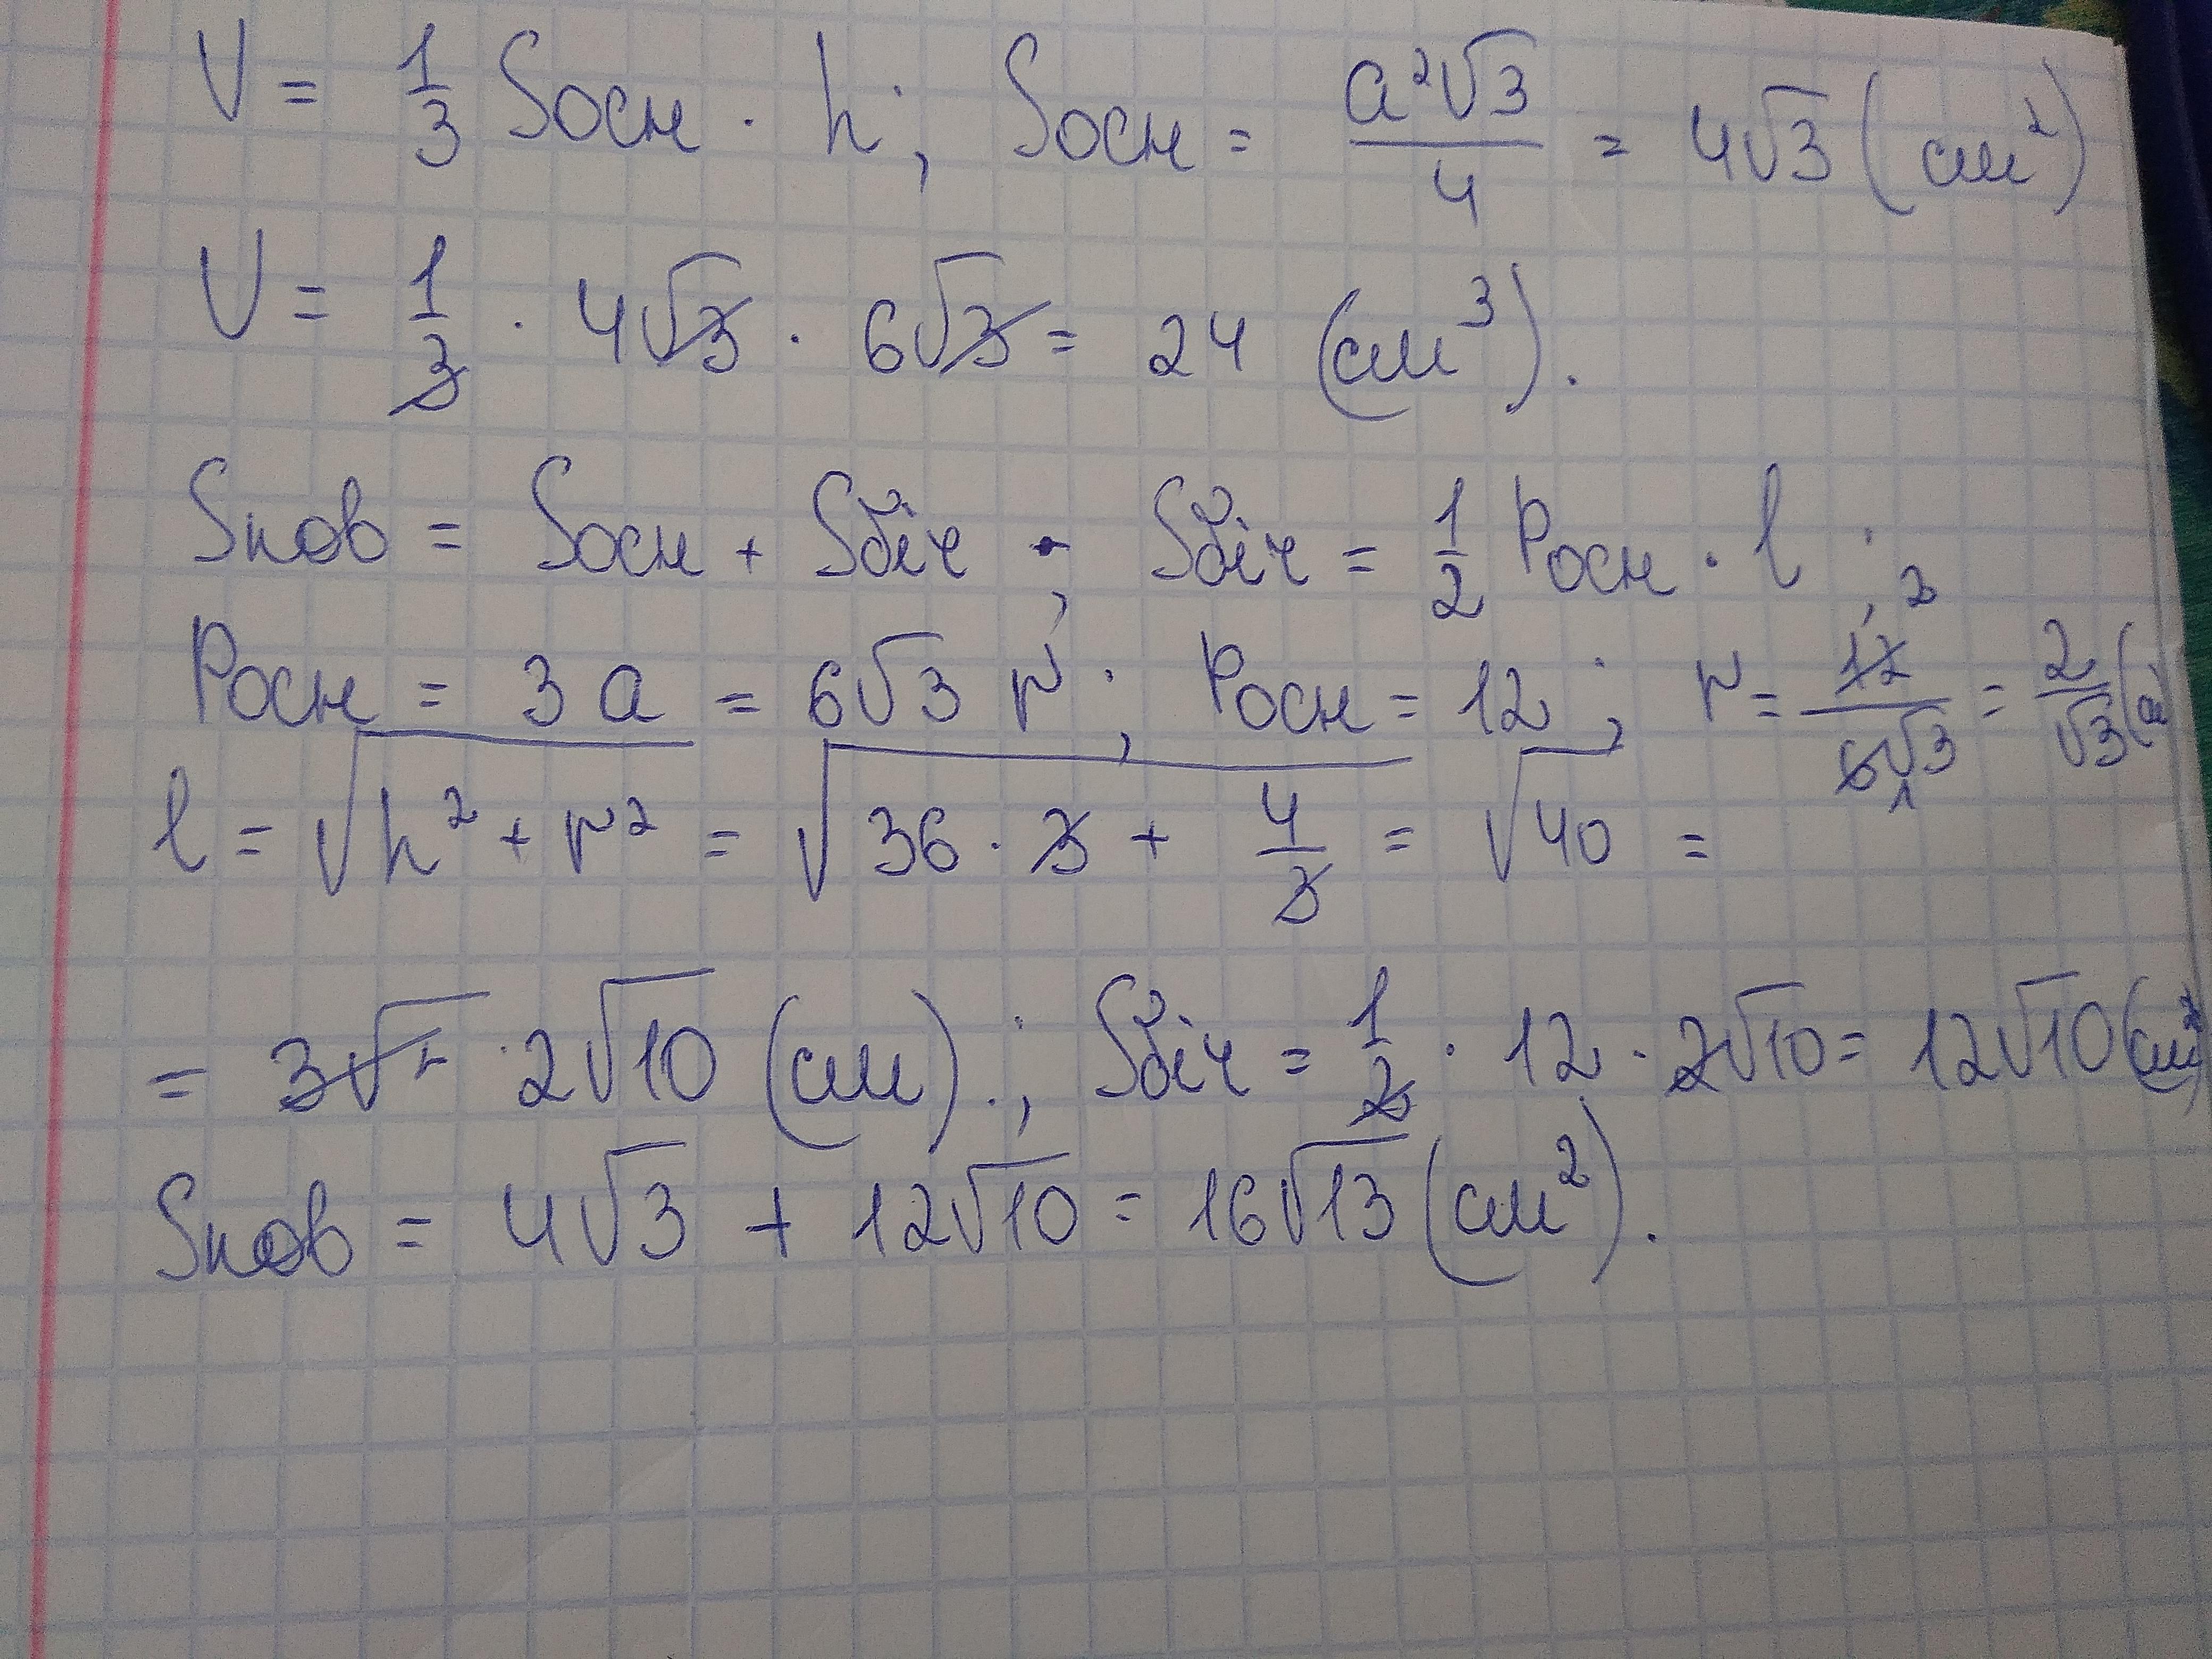 V = 1/3 Sосн · h; Sосн = a²√3/4 = 4√3 (см²)
V = 1/3 · 4√3 · 6√3 = 24 (см³).
Sпов = Sосн + Sбіч ; Sбіч = 1/2 Pосн · l ;
Pосн = 3a = 6√3 r ; Pосн = 12 ; r = 12 2/6√3 1 = 2/√3 (
l = √(h² + r²) = √(36 · 3 + 4/3) = √40 =
= 2√10 (см).; Sбіч = 1/2 · 12 · 2√10 = 12√10 (см²)
Sпов = 4√3 + 12√10 = 16√13 (см²).